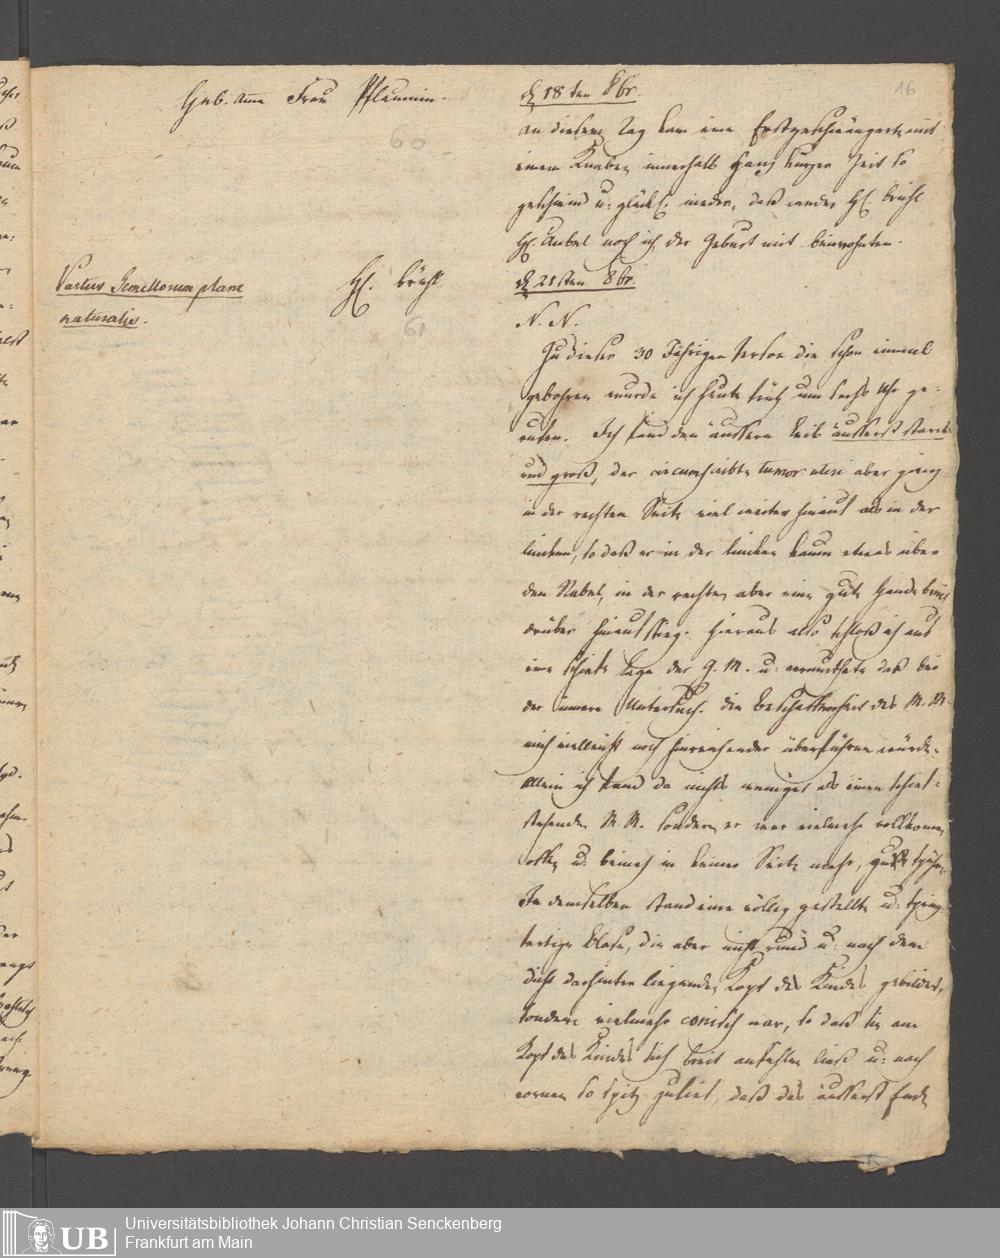 Geb. Amme Frau Pflaumin.
60
16
d 18ten 8br.
an diesem Tag kam eine Erstgeschwängerte mit
einem Knaben innerhalb ganz kurzer Zeit so
geschwind u. glückl. nieder, daß weder H. Brühl
H. Aubel noch ich der Geburt mit beiwohnten.
Partus Gemellorum plane
naturalis.
H. Brühl
61
d 21sten 8br.
N. N.
Zu dieser 30 Jährigen Person die schon einmal
gebohren wurde ich heute früh um sechs Uhr ge-
rufen. Ich fand den äussern Leib äusserst starck
und groß, der circumscribte tumor uteri aber gieng
in der rechten Seite viel weiter hinauf als in der
lincken, so daß er in der lincken kaum etwas über
den Nabel, in der rechten aber eine gute Hand breit
drüber hinauf stieg. Hieraus also schloß ich auf
eine schiefe Lage der G. M. u. vermuthete daß bei
der innern Untersuch. die Beschaffenheit des M. M.
mich vielleicht noch hinreichender überführen würde.
Allein ich fand da nichts weniger als einen schief-
stehenden M. M. sondern er war vielmehr vollkommen
offen u. beinah in keiner Seite mehr, zu
In demselben stand eine völlig gestellte u. spring-
fertige Blase, die aber nicht rund u. nach dem
dicht dahinter liegenden Kopf des Kindes gebildet,
sondern vielmehr conisch war, so daß sie am
Kopf des Kindes sich breit anfühlen ließ u. nach
vornen so spitz zulief, daß das äusserst Ende
Universitätsbibliothek Johann Christian Senckenberg
Frankfurt am Main
UB